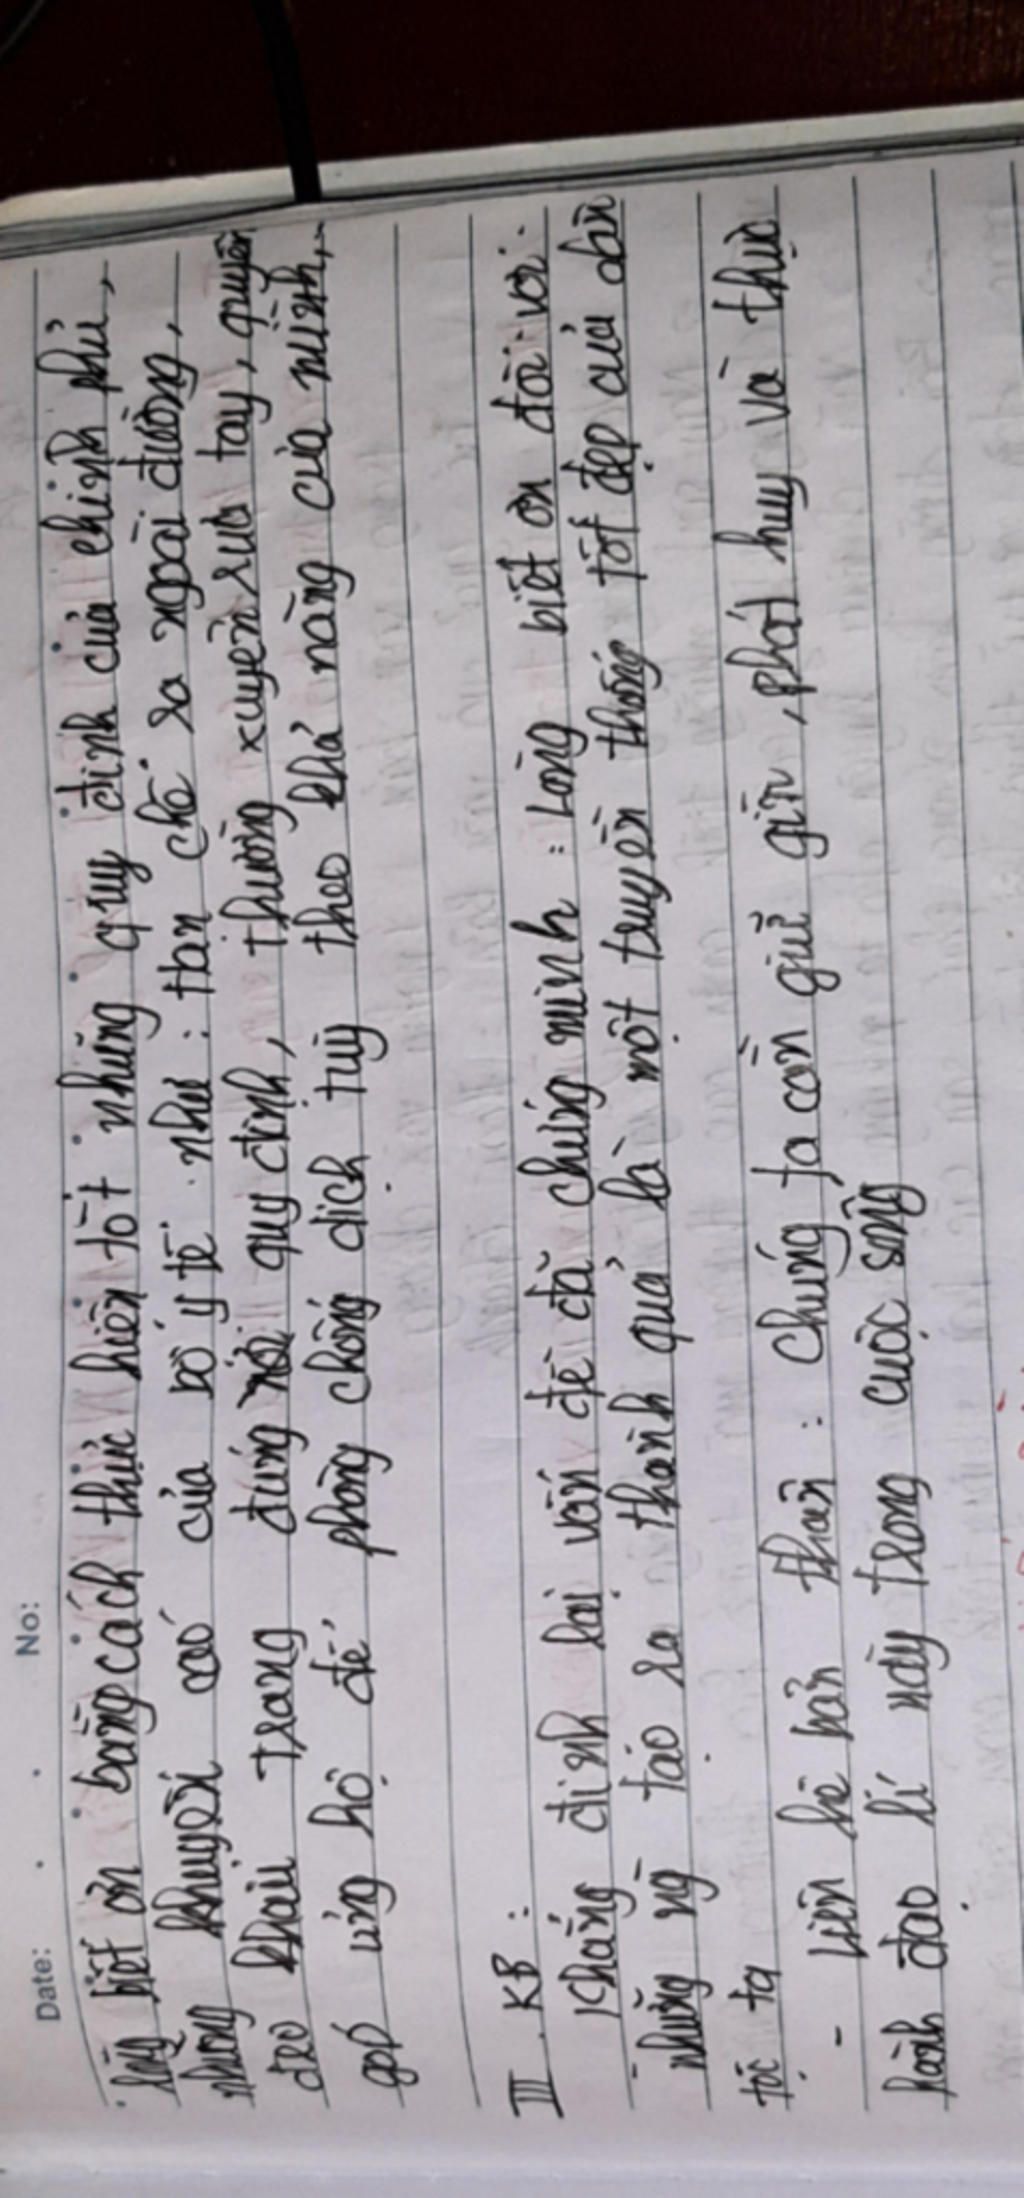 Date: No:
lòng biết ơn bằng cách thực hiện tốt những quy định của chính phủ,
những khuyến cáo của bộ y tế như : hạn chế ra ngoài đường,
đeo khẩu trang đúng quy định, thường xuyên rửa tay, quyên
góp ủng hộ để phòng chống dịch tuỳ theo khả năng của mình,
III. KB :
Khẳng định lại vấn đề đã chứng minh : Lòng biết ơn đối với
những ng tạo ra thành quả là một truyền thống tốt đẹp của dân
tộc ta
- Liên hệ bản thân : chúng ta cần giữ gìn, phát huy và thực
hành đạo lí này trong cuộc sống